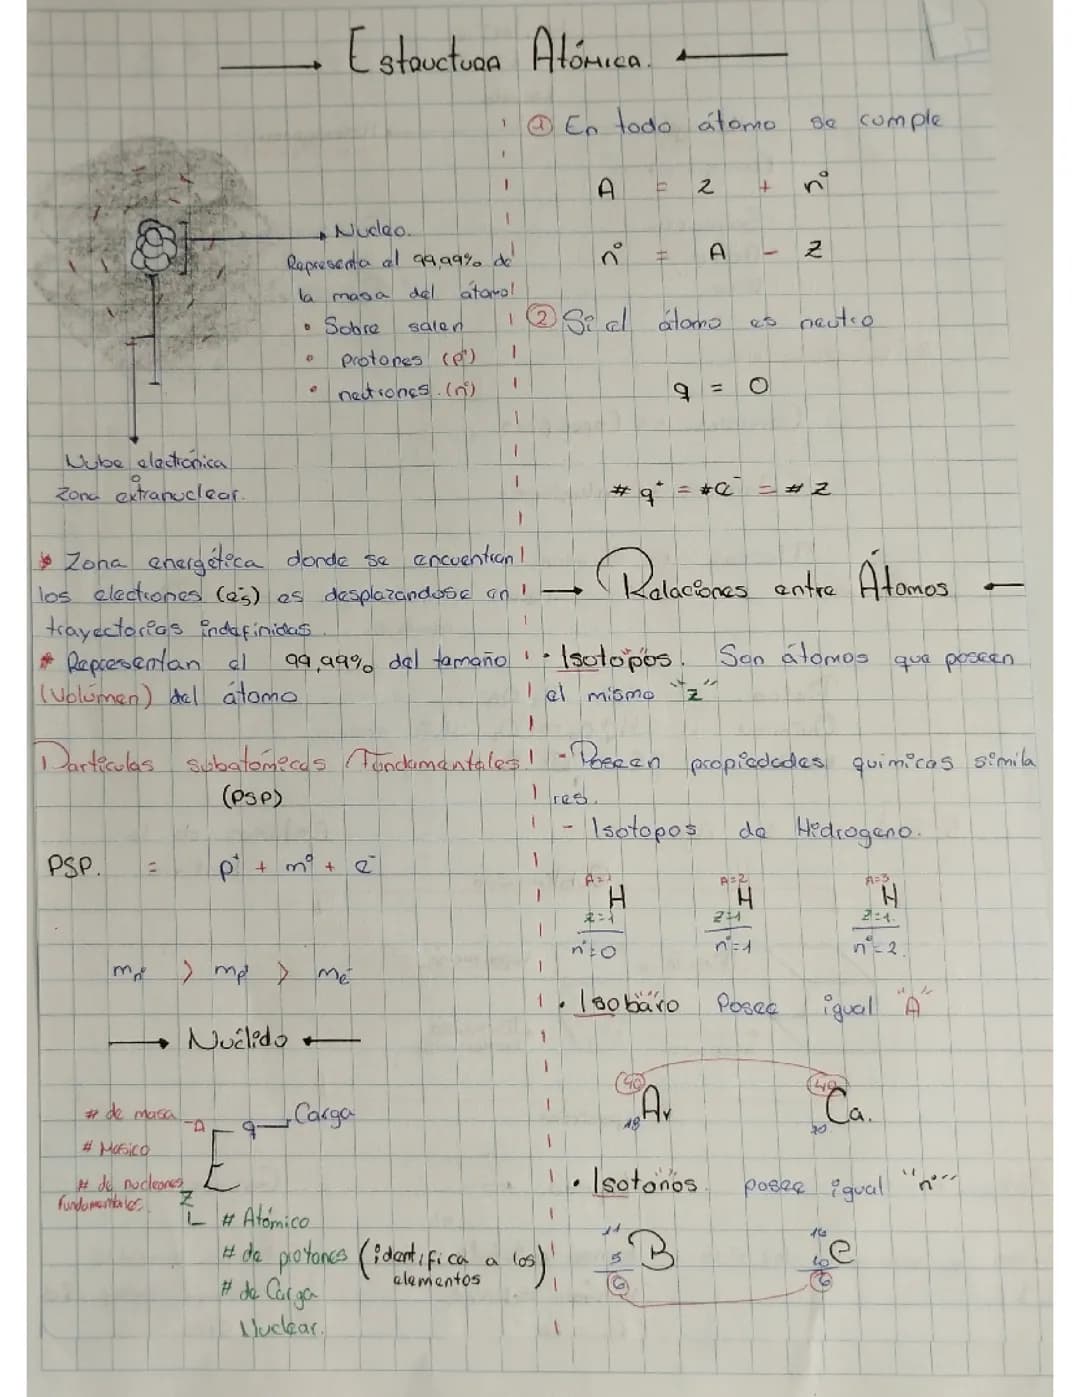 Estructura Atómica.
Nucleo.
Representa el 99,99% de
la masa del átomo
• Sobre salen
• protones (p⁺)
• neutrones. (n°)
Nube electrónica
o
Zona extranuclear.
* Zona energética donde se encuentran
los electrones (e⁻s) es desplazandose en
trayectorias indefinidas.
* Representan el 99,99% del tamaño
(Volúmen) del átomo
Particulas subatómicas Fundamentales
(PSP)
PSP. = p⁺ + m° + e⁻
mn° > mp⁺ > me⁻
Nuclido
# de masa
# Masico
# de nucleones
Fundamentales
A
q Carga
E
Z
# Atómico
# de protones (identifica a los
elementos)
# de Carga
Nuclear.
① En todo átomo se cumple
A = Z + n°
n° = A - Z
② Si el átomo es neutro
q = 0
# q⁺ = #e⁻ = # Z
Relaciones entre Átomos
• Isotopos. Son átomos que poseen
el mismo "z"
- Poseen propiedades quimicas simila
res.
- Isotopos de Hidrogeno.
A=1 A=2 A=3
H H H
Z=1 Z=1 Z=1.
n°=0 n°=1 n°=2.
• Isobáro Posee igual "A"
40 40
Ar Ca.
18 20
• Isotonos. posee igual "n°"
11
B
5
6
C
6